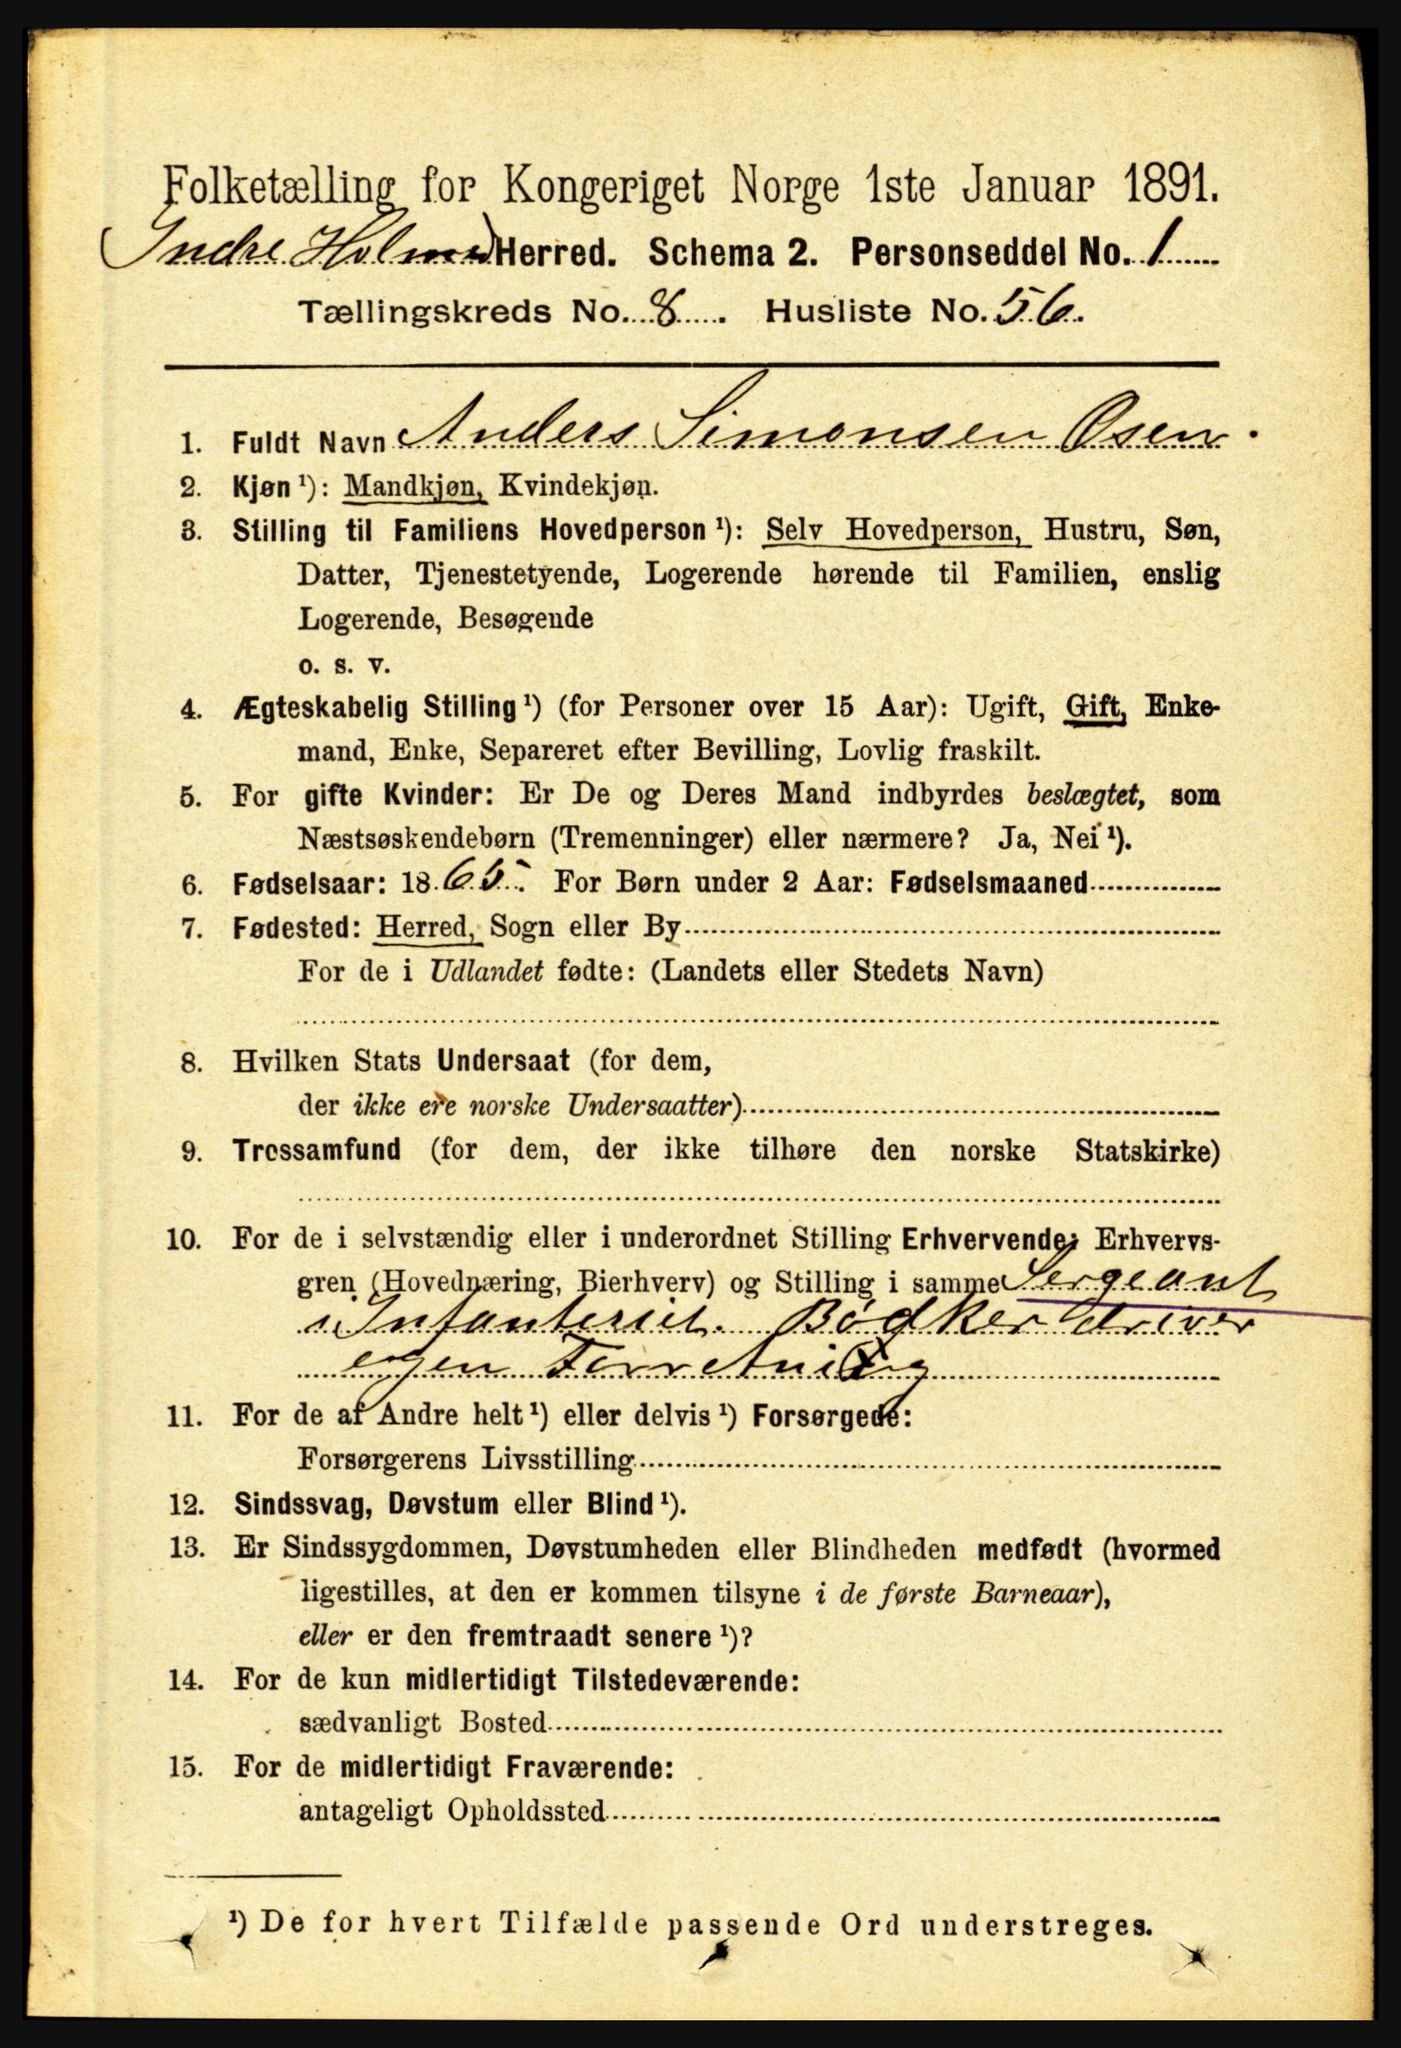 Folketælling for Kongeriget Norge 1ste Januar 1891.
Indre Holmed Herred. Schema 2. Personseddel No. 1
Tællingskreds No. 8. Husliste No. 56.
1. Fuldt Navn Anders Simonsen Osen.
2. Kjøn ¹): Mandkjøn, Kvindekjøn.
3. Stilling til Familiens Hovedperson ¹): Selv Hovedperson, Hustru, Søn,
Datter, Tjenestetyende, Logerende hørende til Familien, enslig
Logerende, Besøgende
o. s. v.
4. Ægteskabelig Stilling ¹) (for Personer over 15 Aar): Ugift, Gift, Enke-
mand, Enke, Separeret efter Bevilling, Lovlig fraskilt.
5. For gifte Kvinder: Er De og Deres Mand indbyrdes beslægtet, som
Næstsøskendebørn (Tremenninger) eller nærmere? Ja, Nei ¹).
6. Fødselsaar: 1865. For Børn under 2 Aar: Fødselsmaaned
7. Fødested: Herred, Sogn eller By
For de i Udlandet fødte: (Landets eller Stedets Navn)
8. Hvilken Stats Undersaat (for dem,
der ikke ere norske Undersaatter)
9. Trossamfund (for dem, der ikke tilhøre den norske Statskirke)
10. For de i selvstændig eller i underordnet Stilling Erhvervende: Erhvervs-
gren (Hovednæring, Bierhverv) og Stilling i samme Sergeant
i Infanteriet. Bødker driver
egen Forretning
11. For de af Andre helt ¹) eller delvis ¹) Forsørgede:
Forsørgerens Livsstilling
12. Sindssvag, Døvstum eller Blind ¹).
13. Er Sindssygdommen, Døvstumheden eller Blindheden medfødt (hvormed
ligestilles, at den er kommen tilsyne i de første Barneaar),
eller er den fremtraadt senere ¹)?
14. For de kun midlertidigt Tilstedeværende:
sædvanligt Bosted
15. For de midlertidigt Fraværende:
antageligt Opholdssted
¹) De for hvert Tilfælde passende Ord understreges.